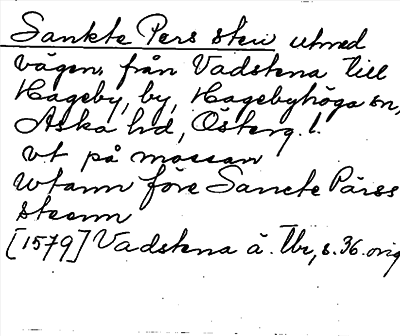 Sankte Pers sten utmed
vägen från Vadstena till
Hageby, by, Hagebyhöga sn,
Aska hd, Österg. l.
vt på mossan
wtann före Sancte Pärss
steenn
[1579] Vadstena ä. Tb, s. 36. orig